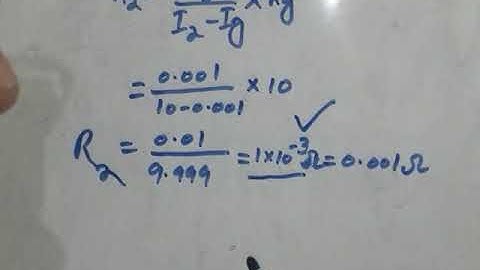 I₂-Ig
= 0.001 / 10-0.001 × 10
R₂ = 0.01 / 9.999 = 1×10⁻³Ω = 0.001Ω